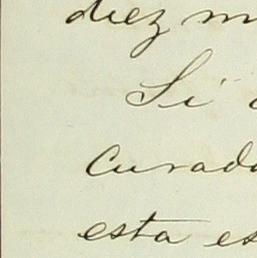 diez m
Si
curad
esta es